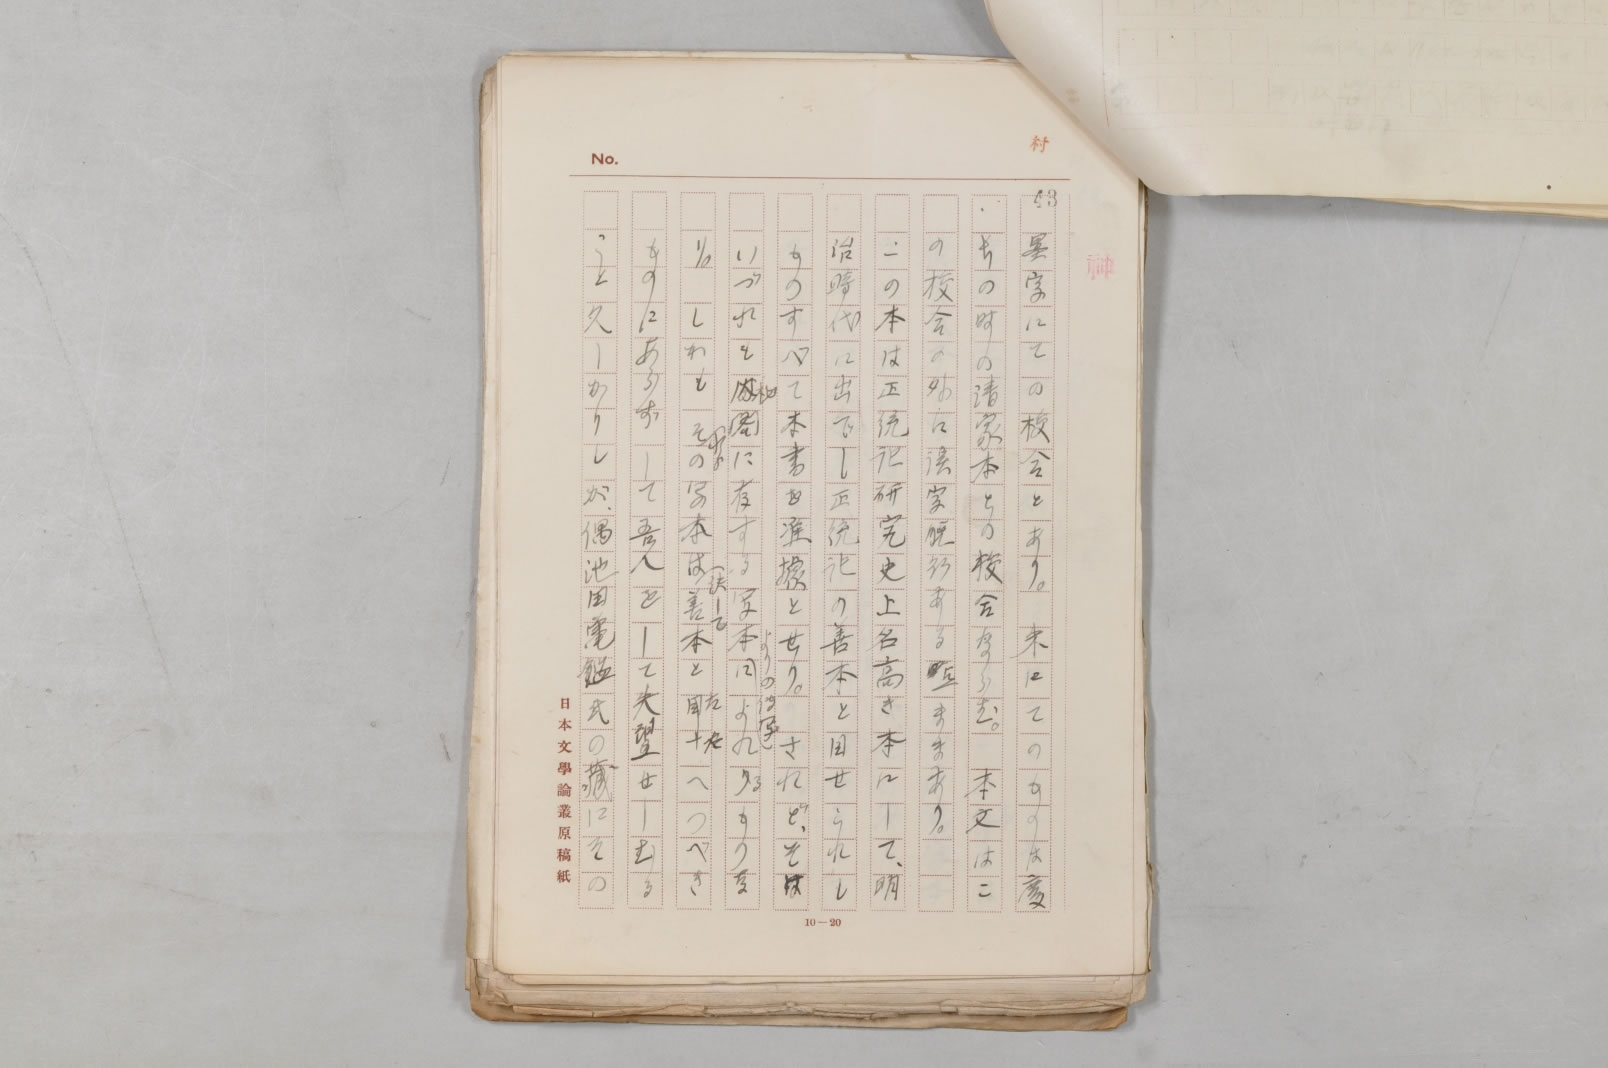 村
No.
53
神
墨字にての校合とあり。朱にてのものは慶
長の時の清家本との校合ならむ。本文はこ
の校合の外に誤字脱行あるままあり。
この本は正統記研究史上名高き本にして、明
治時代に出でし正統記の善本と目せられし
ものすべて本書を準據とせり。されど、そは
いづれも内閣に存する写本によれるもの
しかもその写本は決して善本と目すべき
ものにあらずして吾人をして失望せしむる
こと久しかりしが、偶池田龜鑑氏の蔵にその
10—20
日本文學論叢原稿紙